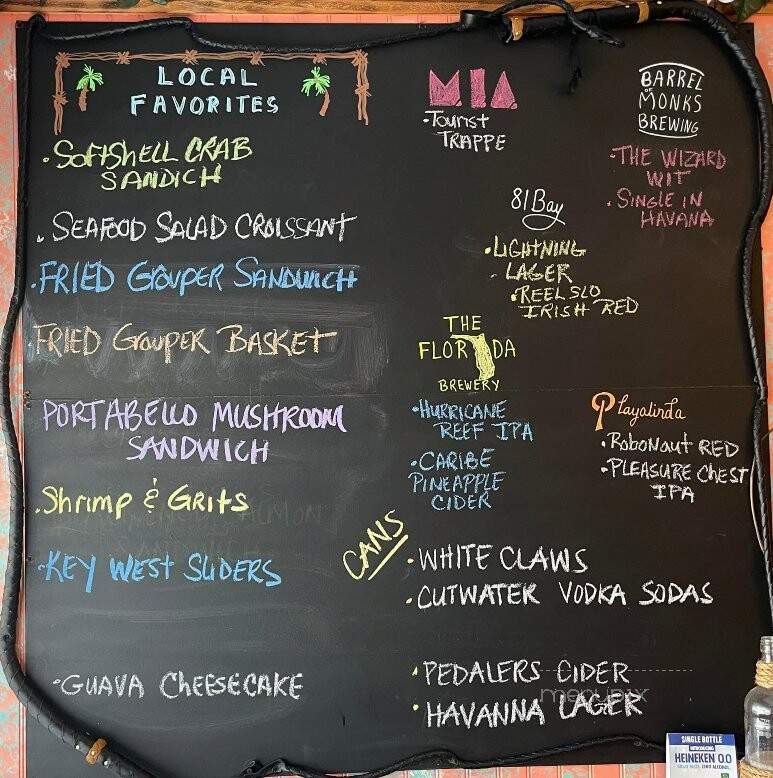 LOCAL
FAVORITES
• SOFTSHELL CRAB
SANDICH
• SEAFOOD SALAD CROISSANT
• FRIED GROUPER SANDWICH
FRIED GROUPER BASKET
PORTABELLO MUSHROOM
SANDWICH
• Shrimp & GRITS
• KEY WEST SLIDERS
• GUAVA CHEESECAKE
M.I.A.
• Tourist
TRAPPE
BARREL
OF
MONKS
BREWING
• THE WIZARD
WIT
• SINGLE IN
HAVANA
81Bay
• LIGHTNING
LAGER
• REEL SLO
IRISH RED
THE
FLORIDA
BREWERY
• HURRICANE
REEF IPA
• CARIBE
PINEAPPLE
CIDER
Playalinda
• ROBONAUT RED
• PLEASURE CHEST
IPA
CANS
• WHITE CLAWS
• CUTWATER VODKA SODAS
• PEDALERS CIDER
• HAVANNA LAGER
menupix
SINGLE BOTTLE
INTRODUCING
HEINEKEN 0.0
GREAT TASTE. ZERO ALCOHOL.